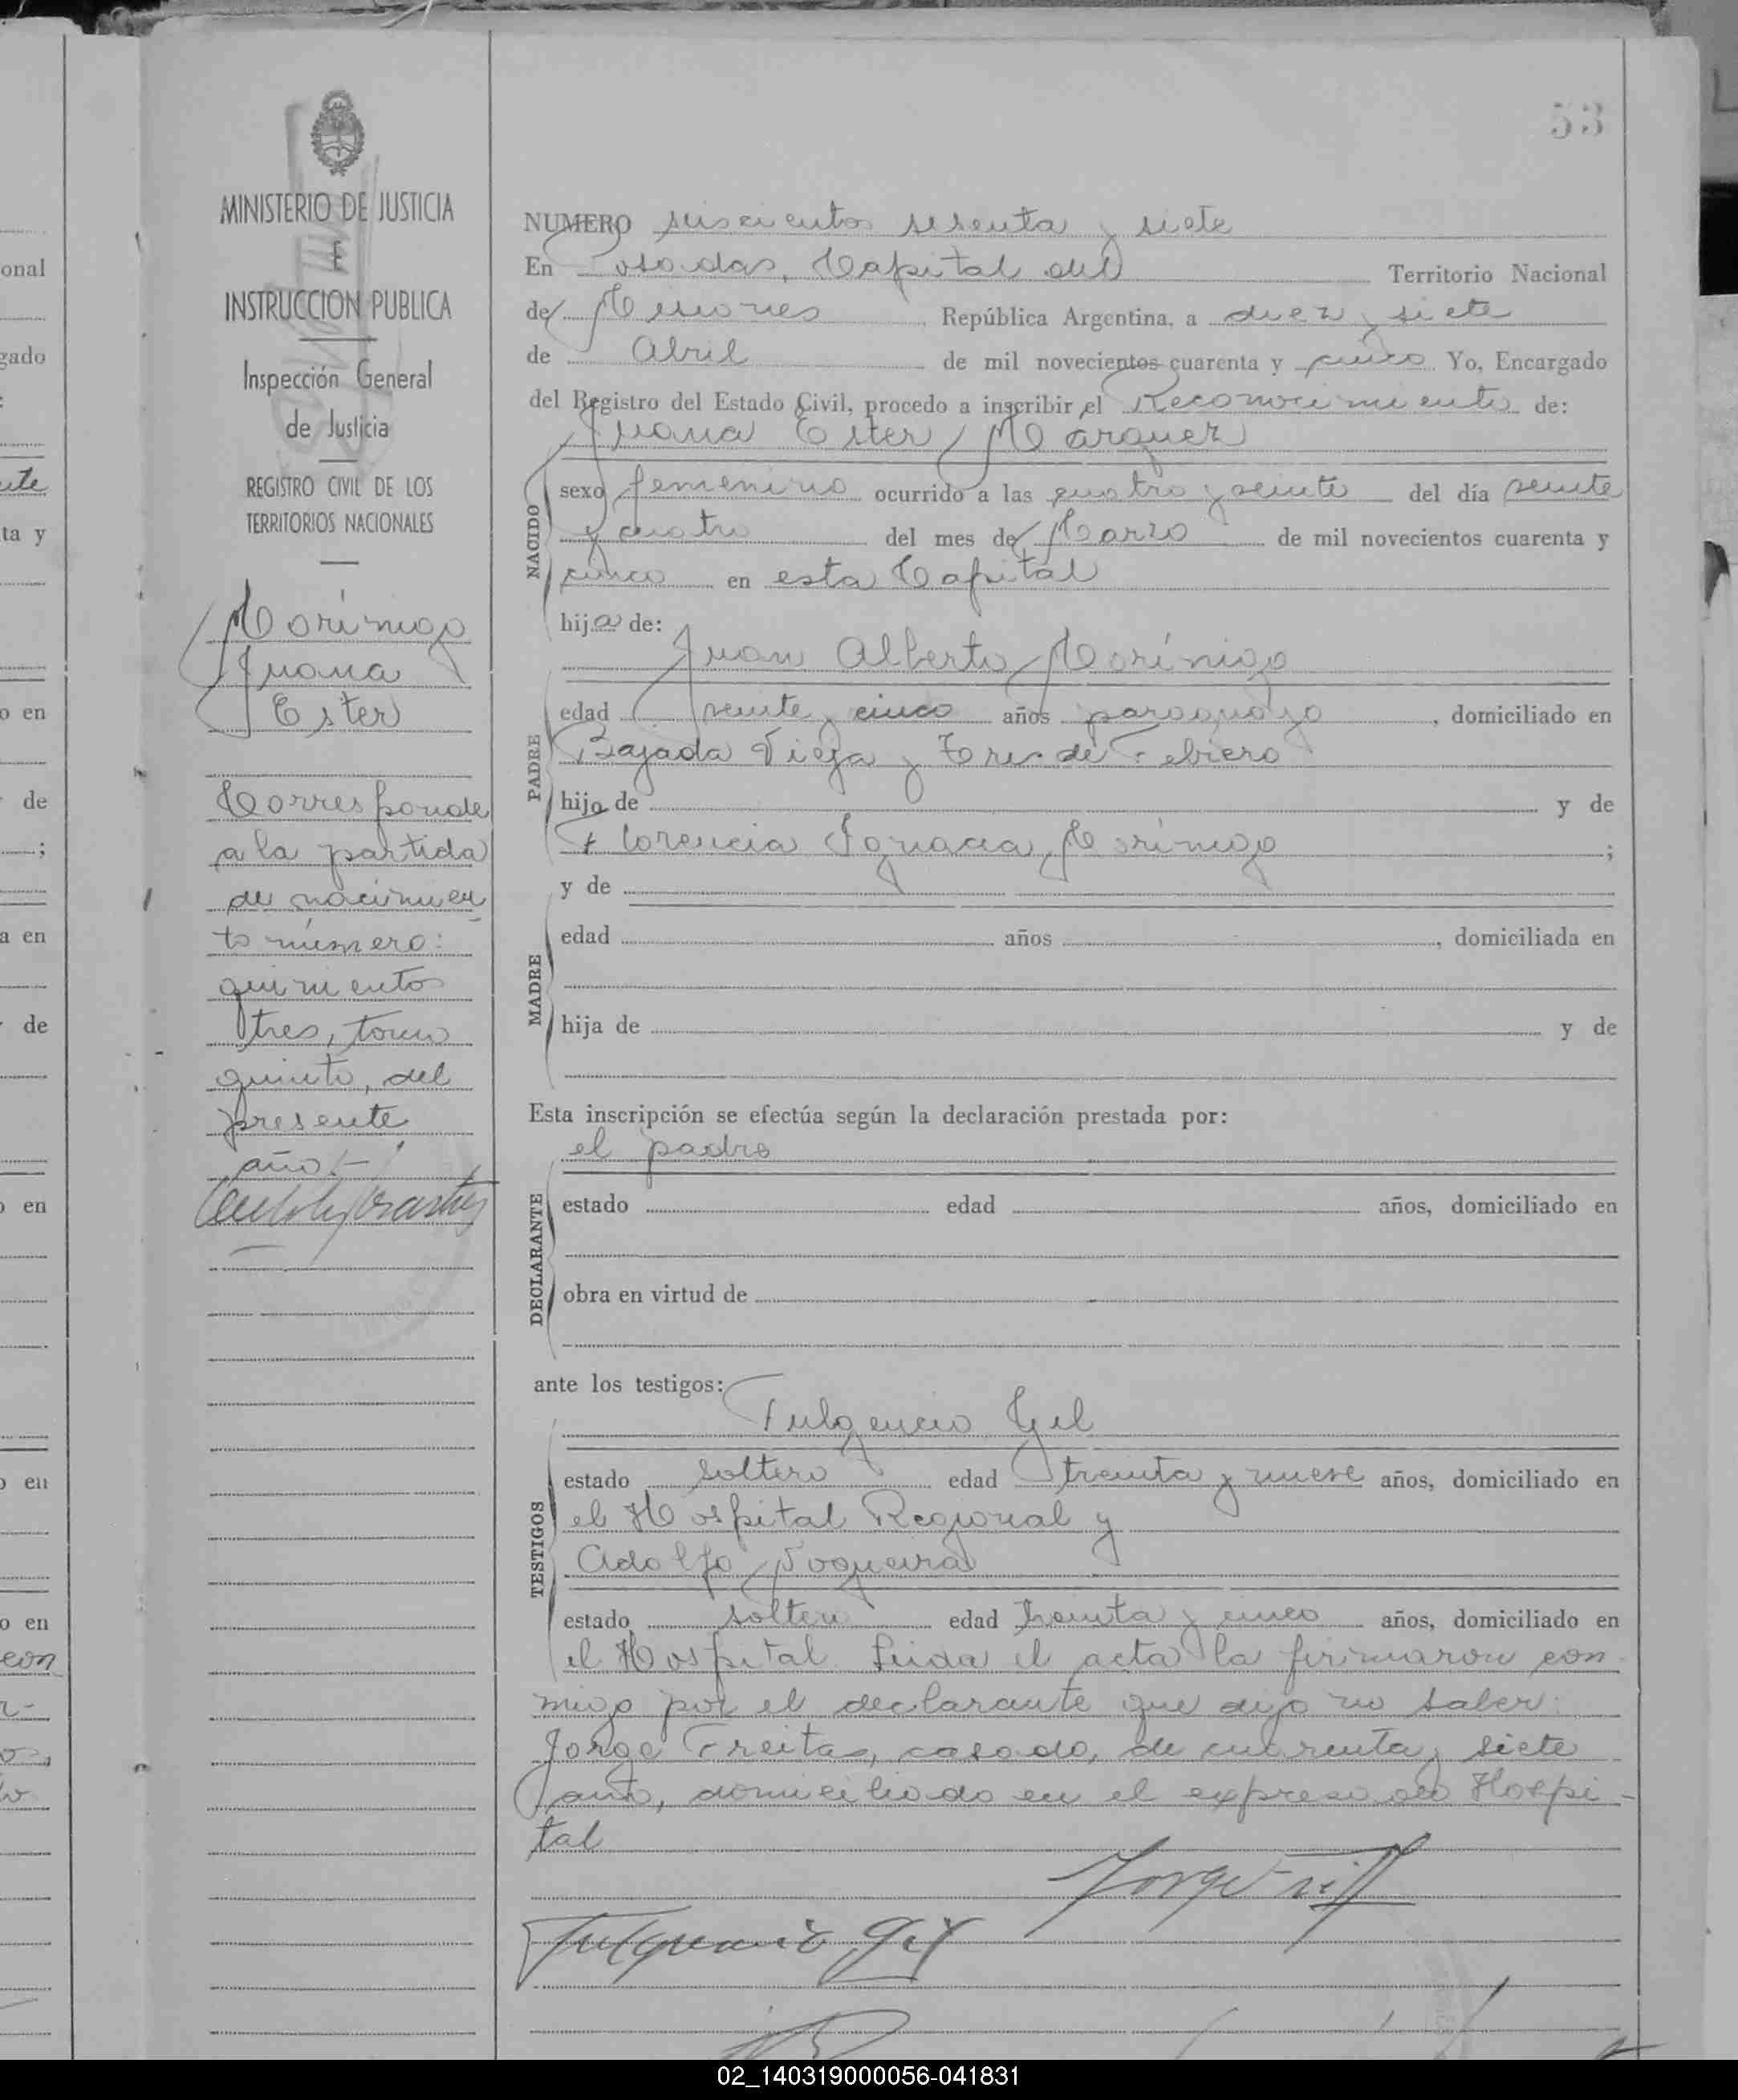 53
MINISTERIO DE JUSTICIA
E
INSTRUCCION PUBLICA
Inspección General
de Justicia
REGISTRO CIVIL DE LOS
TERRITORIOS NACIONALES
Morínigo
Juana
Ester
Corresponde
a la partida
de nacimien
to número:
quinientos
tres, tomo
quinto, del
presente
año.-
NUMERO seiscientos sesenta y siete
En Posadas, Capital del Territorio Nacional
de Misiones, República Argentina, a diez y siete
de Abril de mil novecientos cuarenta y cinco Yo, Encargado
del Registro del Estado Civil, procedo a inscribir el Reconocimiento de:
Juana Ester Marquez
NACIDO
sexo femenino ocurrido a las cuatro y veinte del día veinte
y cuatro del mes de Marzo de mil novecientos cuarenta y
cinco en esta Capital
hija de:
Juan Alberto Morínigo
PADRE
edad veinte y cinco años paraguayo, domiciliado en
Bajada Vieja y Tres de Febrero
hijo de y de
Florencia Ignacia Morínigo;
y de
MADRE
edad años, domiciliada en
hija de y de
Esta inscripción se efectúa según la declaración prestada por:
el padre
DECLARANTE
estado edad años, domiciliado en
obra en virtud de
ante los testigos:
Fulgencio Gil
TESTIGOS
estado soltero edad treinta y nueve años, domiciliado en
el Hospital Regional y
Adolfo Nogueira
estado soltero edad treinta y cinco años, domiciliado en
el Hospital. Leida el acta la firmaron con
migo por el declarante que dijo no saber:
Jorge Freitas, casado, de cuarenta y siete
años, domiciliado en el expresado Hospi-
tal
Fulgencio Gil
onal
gado
:
ute
ta y
o en
de
;
a en
de
o en
o en
o en
con
r-
02_140319000056-041831